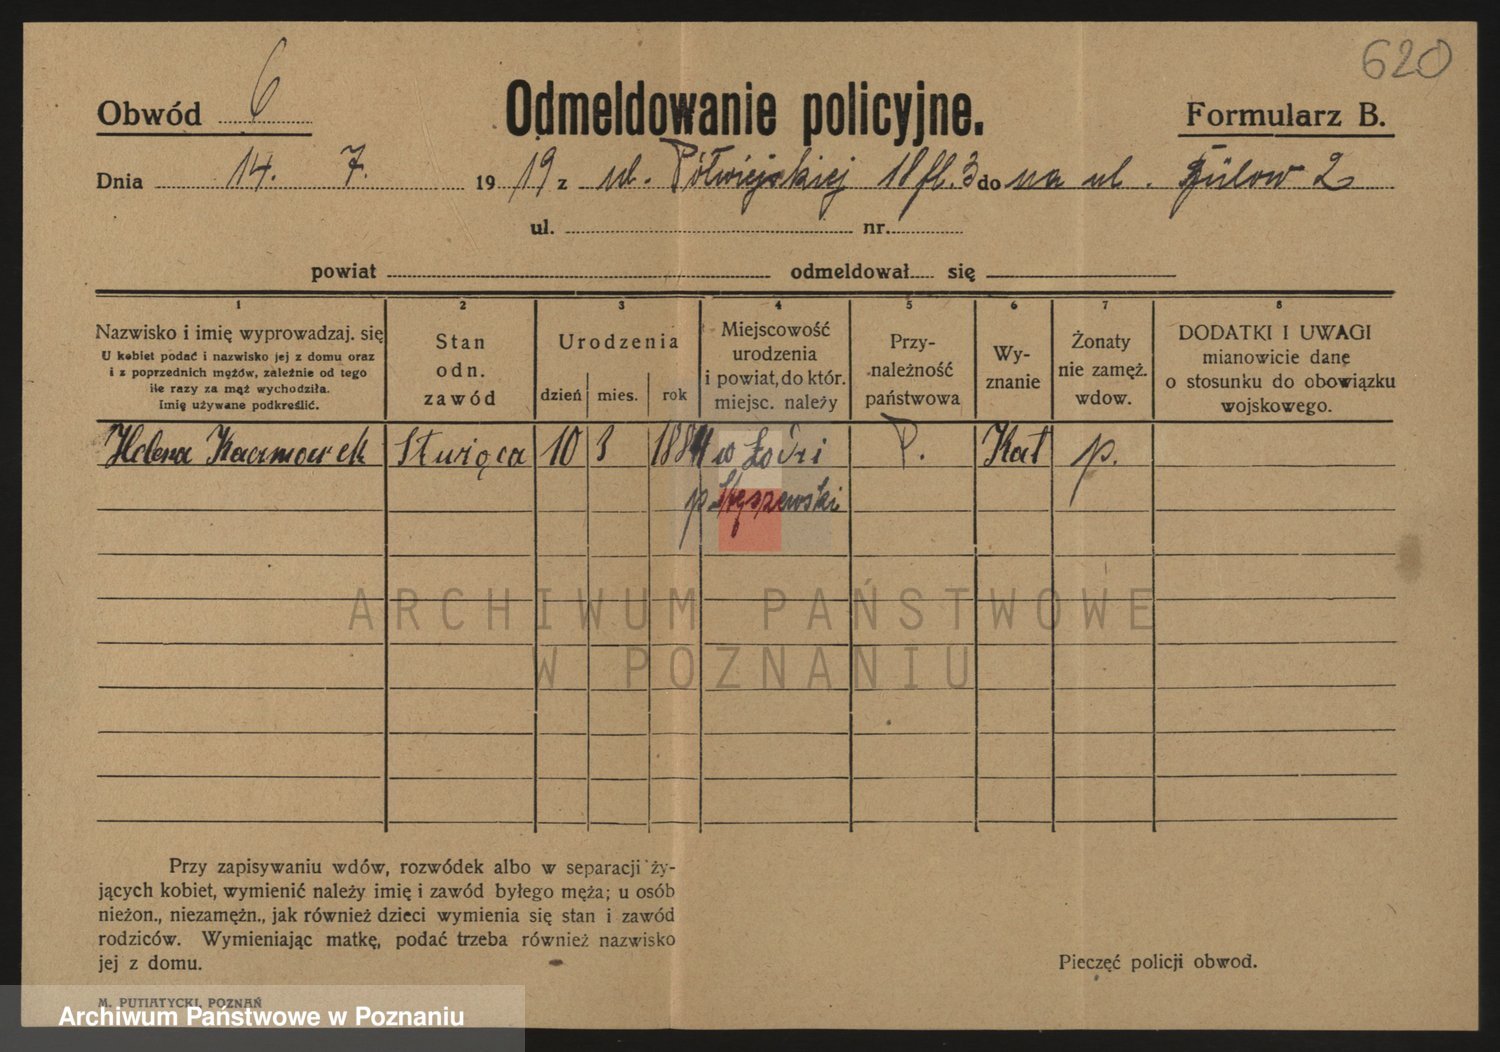 620
Obwód 6
Odmeldowanie policyjne.
Formularz B.
Dnia 14. 7. 1919 z ul. Półwiejskiej 18 fl. 3 do na ul. Bülow 2
ul. nr.
powiat odmeldował się
1 2 3 4 5 6 7 8
Nazwisko i imię wyprowadzaj. się
U kobiet podać i nazwisko jej z domu oraz
i z poprzednich mężów, zależnie od tego
ile razy za mąż wychodziła.
Imię używane podkreślić.
Stan
odn.
zawód
Urodzenia
dzień mies. rok
Miejscowość
urodzenia
i powiat, do któr.
miejsc. należy
Przy-
należność
państwowa
Wy-
znanie
Żonaty
nie zamęż.
wdow.
DODATKI I UWAGI
mianowicie danę
o stosunku do obowiązku
wojskowego.
Helena Kaczmarek Służąca 10 3 1884 w Łodzi P. Kat p.
p
ARCHIWUM PAŃSTWOWE
W POZNANIU
Przy zapisywaniu wdów, rozwódek albo w separacji ży-
jących kobiet, wymienić należy imię i zawód byłego męża; u osób
nieżon., niezamężn., jak również dzieci wymienia się stan i zawód
rodziców. Wymieniając matkę, podać trzeba również nazwisko
jej z domu.
Pieczęć policji obwod.
M. PUTIATYCKI, POZNAŃ
Archiwum Państwowe w Poznaniu